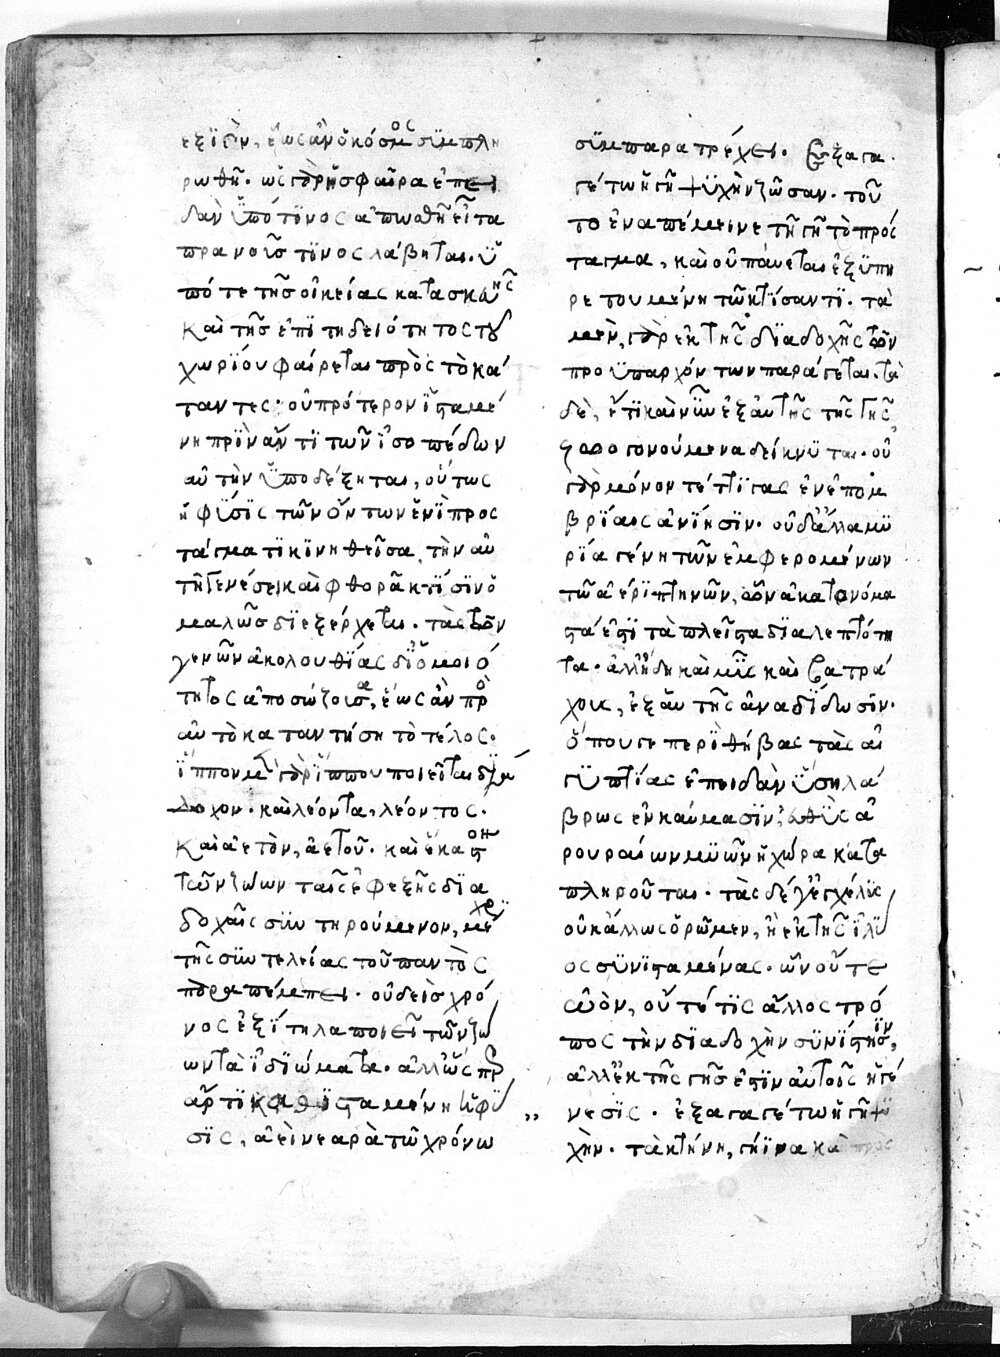 εξϊέν, ἕως ἂν ὁ κόσμος σϋμπλη
ρωθῆ. ὡς γὰρ ἡ σφαῖρα ἐπει
δὰν ϋπό τϊνος ἀπωσθῆ εἶτα
πρανοῦς τϊνος λάβηται. ϋ
πό τε τῆς οἰκείας κατασκευῆς
καὶ τῆς ἐπϊτηδειότητος τοῦ
χωρΐου φαίρεται πρὸς τὸ κά
ταντες· οὐ πρότερον ϊσταμέ
νη πρὶν ἄν τϊ τῶν ϊσοπέδων
αὐτὴν ϋποδέξηται, οὕτως
ἡ φΰσϊς τῶν ὄντων ἑνὶ προσ
τάγματϊ κϊνηθεῖσα, τὴν αὐ
τῆ γενέσει καὶ φθορᾶ κτΐσϊν ὁ
μαλῶς δϊεξέρχεται. τὰς τῶν
γενῶν ἀκολουθΐας δϊ ὁμοιό
τητος ἀποσώζουσα, ἕως ἂν πρὸ
αὐτὸ καταντήση τὸ τέλος.
ϊππον μὲν γὰρ ϊππου ποιεῖται δϊά
δοχον. καὶ λέοντα, λέοντος.
καὶ ἀετὸν, ἀετοῦ. καὶ ἕκαστον
τῶν ζώων ταῖς ἐφεξῆς δϊα
δοχαῖς σϋντηρούμενον, μέχρϊ
τῆς σϋντελείας τοῦ παντὸς
παραπέμπει. οὐδεὶς χρό
νος ἐξΐτηλα ποιεῖ τῶν ζώ
ων τὰ ϊδϊώματα. ἀλλ ὥσπερ
ἄρτϊ καθϊσταμένη ἡ φΰ
σϊς, ἀεὶ νεαρὰ τῶ χρόνω
σϋμπαρατρέχει. Ἐξαγα
γέτω ἡ γῆ ψϋχὴν ζῶσαν. τοῦ
το ἐναπέμεινε τῆ γῆ τὸ πρόσ
ταγμα, καὶ οὐ παύεται ἐξϋπη
ρετουμένη τῶ κτΐσαντϊ. τὰ
μὲν, γὰρ ἐκ τῆς δϊαδοχῆς τῶν
προϋπαρχόντων παράγεται. τὰ
δὲ, ἔτϊ καὶ νῦν ἐξ αὐτῆς τῆς γῆς
ζωογονούμενα δείκνϋται. οὐ
γὰρ μόνον τέττϊγας ἐν ἐπομ
βρΐαις ἀνΐησϊν. οὐδ ἄλλα μϋ
ρΐα γένη τῶν ἐμφερομένων
τῶ ἀέρϊ πτηνῶν, ὧν ἀκατονόμα
στά ἐστϊ τὰ πλεῖστα δϊα λεπτότη
τα. ἀλλ ἤδη καὶ μῦς καὶ βατρά
χους, ἐξ αὐτῆς ἀναδΐδωσϊν.
ὅπου γε περὶ θήβας τὰς αἰ
γϋπτΐας ἐπειδὰν ϋση λά
βρως ἐν καύμασϊν, εὐθὺς ἀ
ρουραίων μϋῶν ἡ χώρα κατα
πληροῦται. τὰς δέ γε ἐγχέλϋς
οὐκ ἄλλως ὁρῶμεν, ἢ ἐκ τῆς ϊλϋ
ος σϋνϊσταμένας. ὧν οὔτε
ὠὸν, οὔτέ τϊς ἄλλος τρό
πος τὴν δϊαδοχὴν σϋνΐστησϊν,
ἀλλ ἐκ τῆς γῆς ἐστϊν αὐτοῖς ἡ γέ
νεσϊς. ἐξαγαγέτω ἡ γῆ ψϋ
χὴν. τὰ κτήνη, γήϊνα καὶ προς